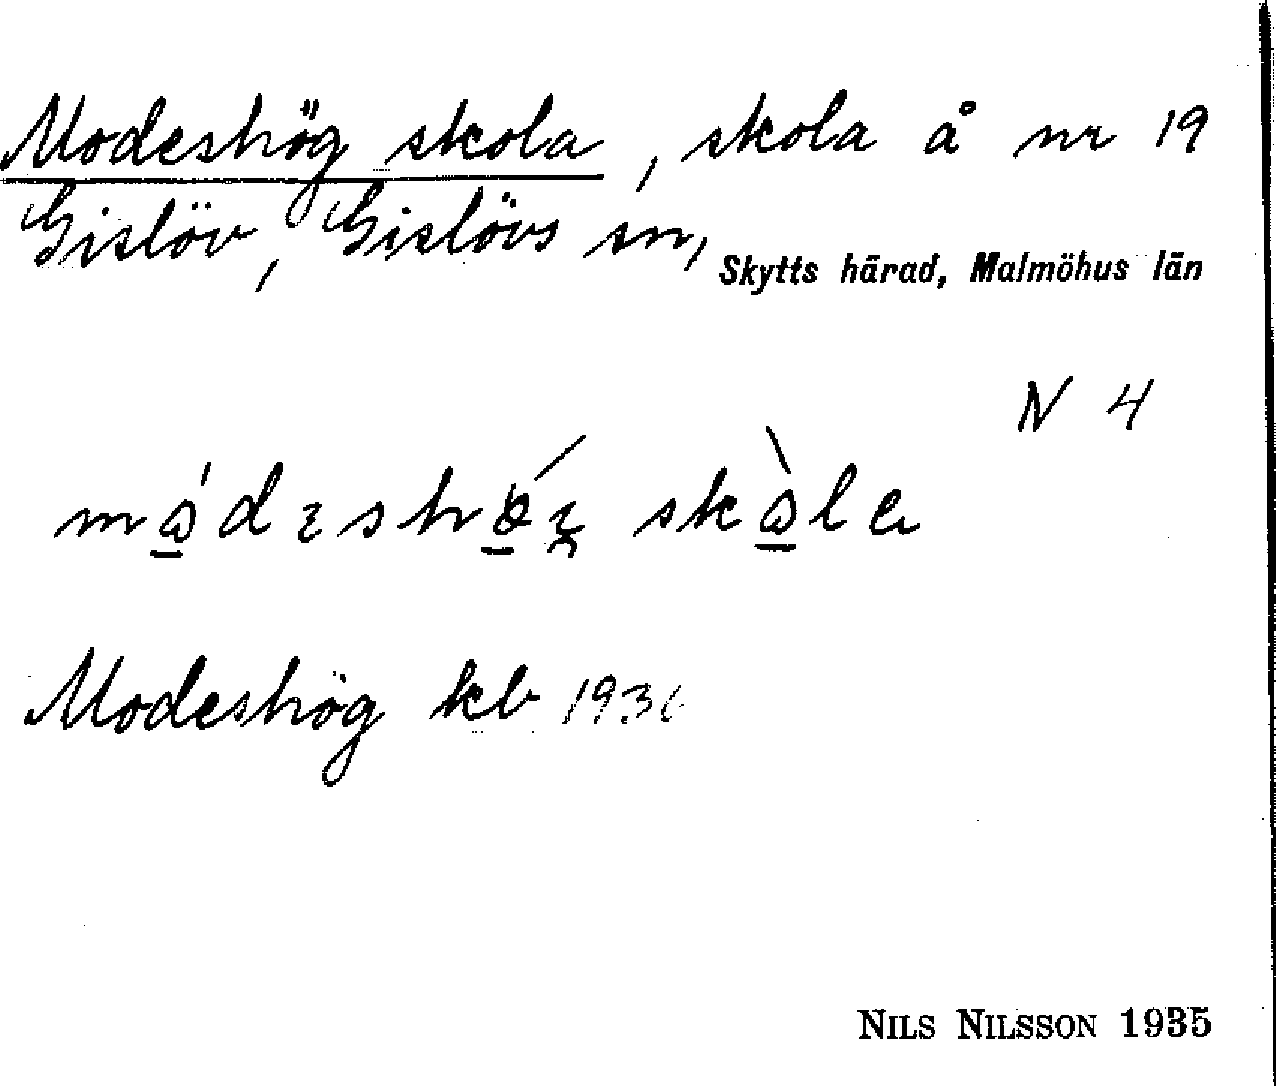 Modeshög skola, skola å nr 19
Gislöv, Gislövs sn, Skytts härad, Malmöhus län
N 4
Modeshög kb 1936
NILS NILSSON 1935